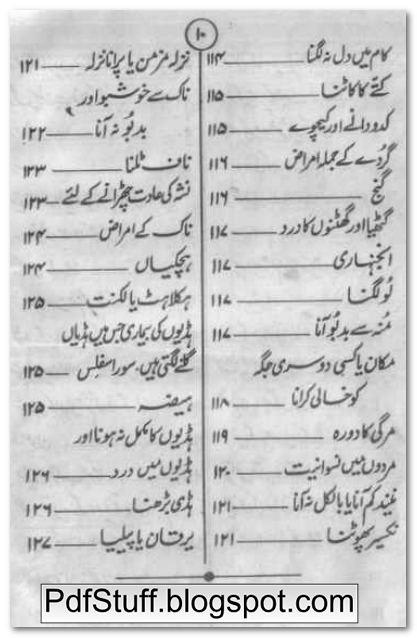 ۱۰
کام میں دل نہ لگنا ۱۱۴
کتے کا کاٹنا ۱۱۵
کدو دانے اور کیچوے ۱۱۵
گردے کے جملہ امراض ۱۱۶
گنج ۱۱۶
گٹھیا اور گھٹنوں کا درد ۱۱۷
انجہاری ۱۱۷
لُو لگنا ۱۱۷
مُنہ سے بدبُو آنا ۱۱۷
مکان یا کسی دوسری جگہ
کو خالی کرانا ۱۱۸
مرگی کا دورہ ۱۱۹
مردوں میں نسوانیت ۱۲۰
نیند کم آنا یا بالکل نہ آنا ۱۲۱
نکسیر پھوٹنا ۱۲۱
نزلہ مزمن یا پرانا نزلہ ۱۲۱
ناک سے خوشبو اور
بدبُو نہ آنا ۱۲۲
ناف ٹلنا ۱۲۳
نشہ کی عادت چھڑانے کے لئے ۱۲۳
ناک کے امراض ۱۲۴
ہچکیاں ۱۲۴
ہکلاہٹ یا لکنت ۱۲۵
ہڈیوں کی بیماری جس میں ہڈیاں
گلنے لگتی ہیں۔ سورا سفلس ۱۲۵
ہیضہ ۱۲۵
ہڈیوں کا مکمل نہ ہونا اور
ہڈیوں میں درد ۱۲۶
ہڈی بڑھنا ۱۲۶
یرقان یا پیلیا ۱۲۷
PdfStuff.blogspot.com